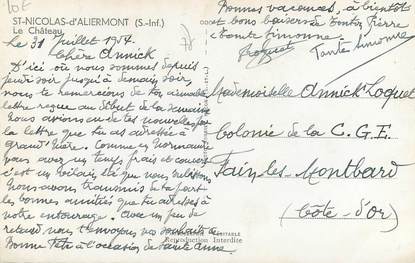 ST-NICOLAS-d'ALIERMONT (S.-Inf.)
Le Château
Le 31 Juillet 1954.
Chère Annick
D'ici où nous sommes depuis
jeudi soir jusqu'à demain soir,
nous te remercions de ton aimable
lettre reçue au début de la semaine
Nous avions eu de tes nouvelles par
la lettre que tu as adressée à
grand'mère. Comme en Normandie
vous avez un temps frais et couvert
c'est un voilà que nous
Nous avons transmis de ta part
les bonnes amitiés que tu adresses à
notre entourage. Avec un peu de
retard nous t'envoyons nos souhaits de
Bonne Fête à l'occasion de Sainte Anne.
Bonnes vacances, à bientôt
et bons baisers de tonton Pierre
et tante Simonne.
Tante Simonne
Mademoiselle Annick Loquet
Colonie de la C.G.E.
Fain-les-Montbard
(Côte-d'Or)
VÉRITABLE
Reproduction Interdite